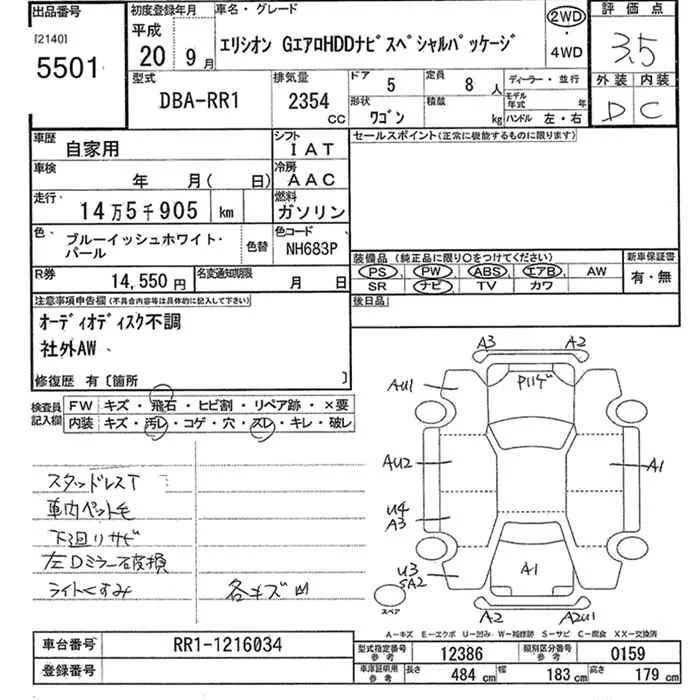 出品番号
[2140]
5501
初度登録年月
平成
20 9月
車名・グレード
エリシオン GエアロHDDナビスペシャルパッケージ
2WD
・
4WD
評価点
3.5
外装 内装
D C
型式
DBA-RR1
排気量
2354
CC
ドア 5
定員 8 人
ディーラー・並行
形状 ワゴン
積載 kg
モデル年式 年
ハンドル 左・右
車歴
自家用
シフト
IAT
セールスポイント(正常に機能するものに限ります)
車検
年 月( 日)
冷房
AAC
走行
14万5千905 km
燃料
ガソリン
色
ブルーイッシュホワイト・
パール
色替
色コード
NH683P
装備品 (純正品に限り○をつけてください)
新車保証書
PS PW ABS エアB AW
SR ナビ TV カワ
有・無
R券
14,550円
名変通知期限
月 日
後日品
注意事項申告欄(不具合内容等は具体的に記入して下さい)
オーディオディスク不調
社外AW
修復歴 有〔箇所 〕
検査員
記入欄
FW キズ・飛石・ヒビ割・リペア跡・×要
内装 キズ・汚レ・コゲ・穴・スレ・キレ・破レ
スタッドレスT
車内ペット毛
下廻りサビ
左Dミラー石
ライトくすみ
各キズ凹
A3 A2
AU1
AU2
A1
U4
A3
U3
SA2
A1
A2
A2U1
スペア
A-キズ E-エクボ U-凹み W-補修跡 S-サビ C-腐食 XX-交換済
車台番号
RR1-1216034
登録番号
型式指定番号
参考
12386
類別区分番号
参考
0159
車庫証明用
参考
長さ 484 cm
幅 183 cm
高さ 179 cm